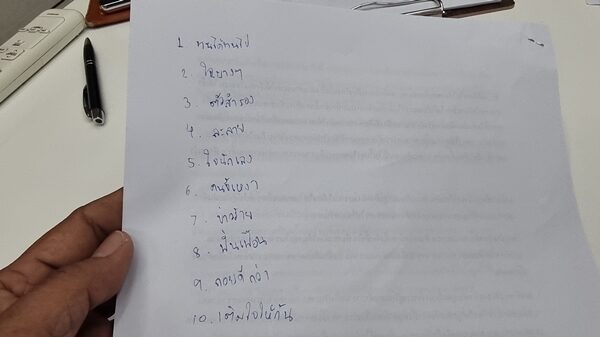 1 ทนได้ทนไป
2. ใจบางๆ
3. ตัวสำรอง
4. ละลาย
5. ใจนักเลง
6. คนขี้เหงา
7. บ้าย
8. ฟั่นเฟือน
9. ถอยดีกว่า
10. เติมใจให้กัน